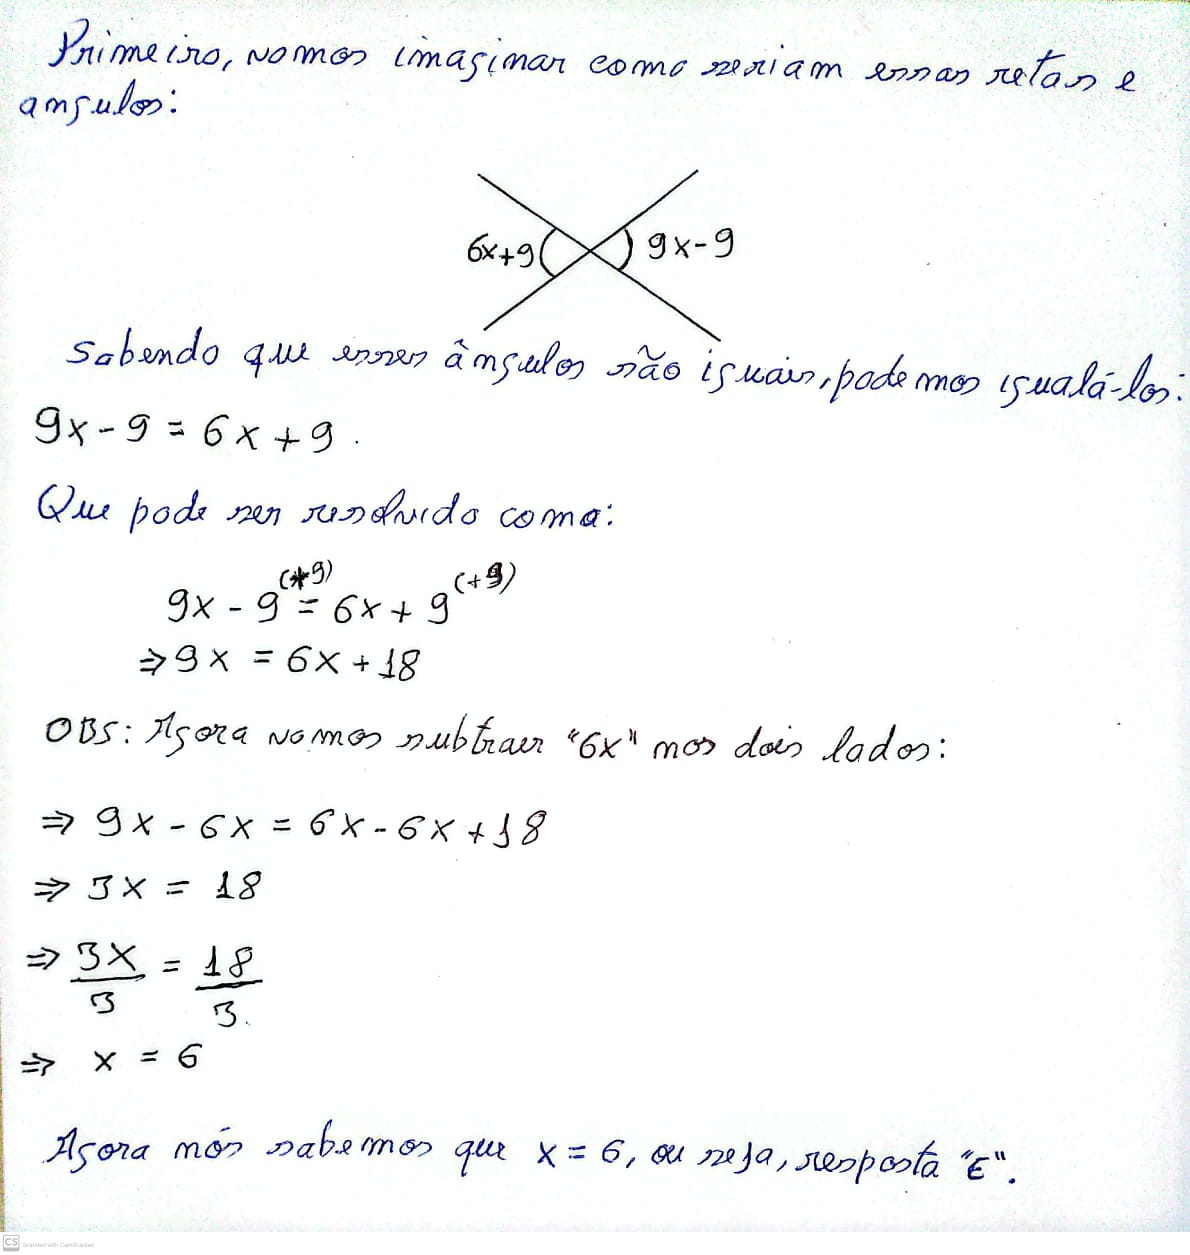 Primeiro, vamos imaginar como seriam essas retas e
angulos:
6x+9 9x-9
Sabendo que esses ângulos são iguais, podemos igualá-los:
9x - 9 = 6x + 9.
Que pode ser resolvido coma:
9x - 9 (+9) = 6x + 9 (+9)
⇒ 9x = 6x + 18
OBS: Agora vamos subtrair "6x" nos dois lados:
⇒ 9x - 6x = 6x - 6x + 18
⇒ 3x = 18
⇒ 3x/3 = 18/3.
⇒ x = 6
Agora nós sabemos que x = 6, ou seja, resposta "E".
CS Scanned with CamScanner